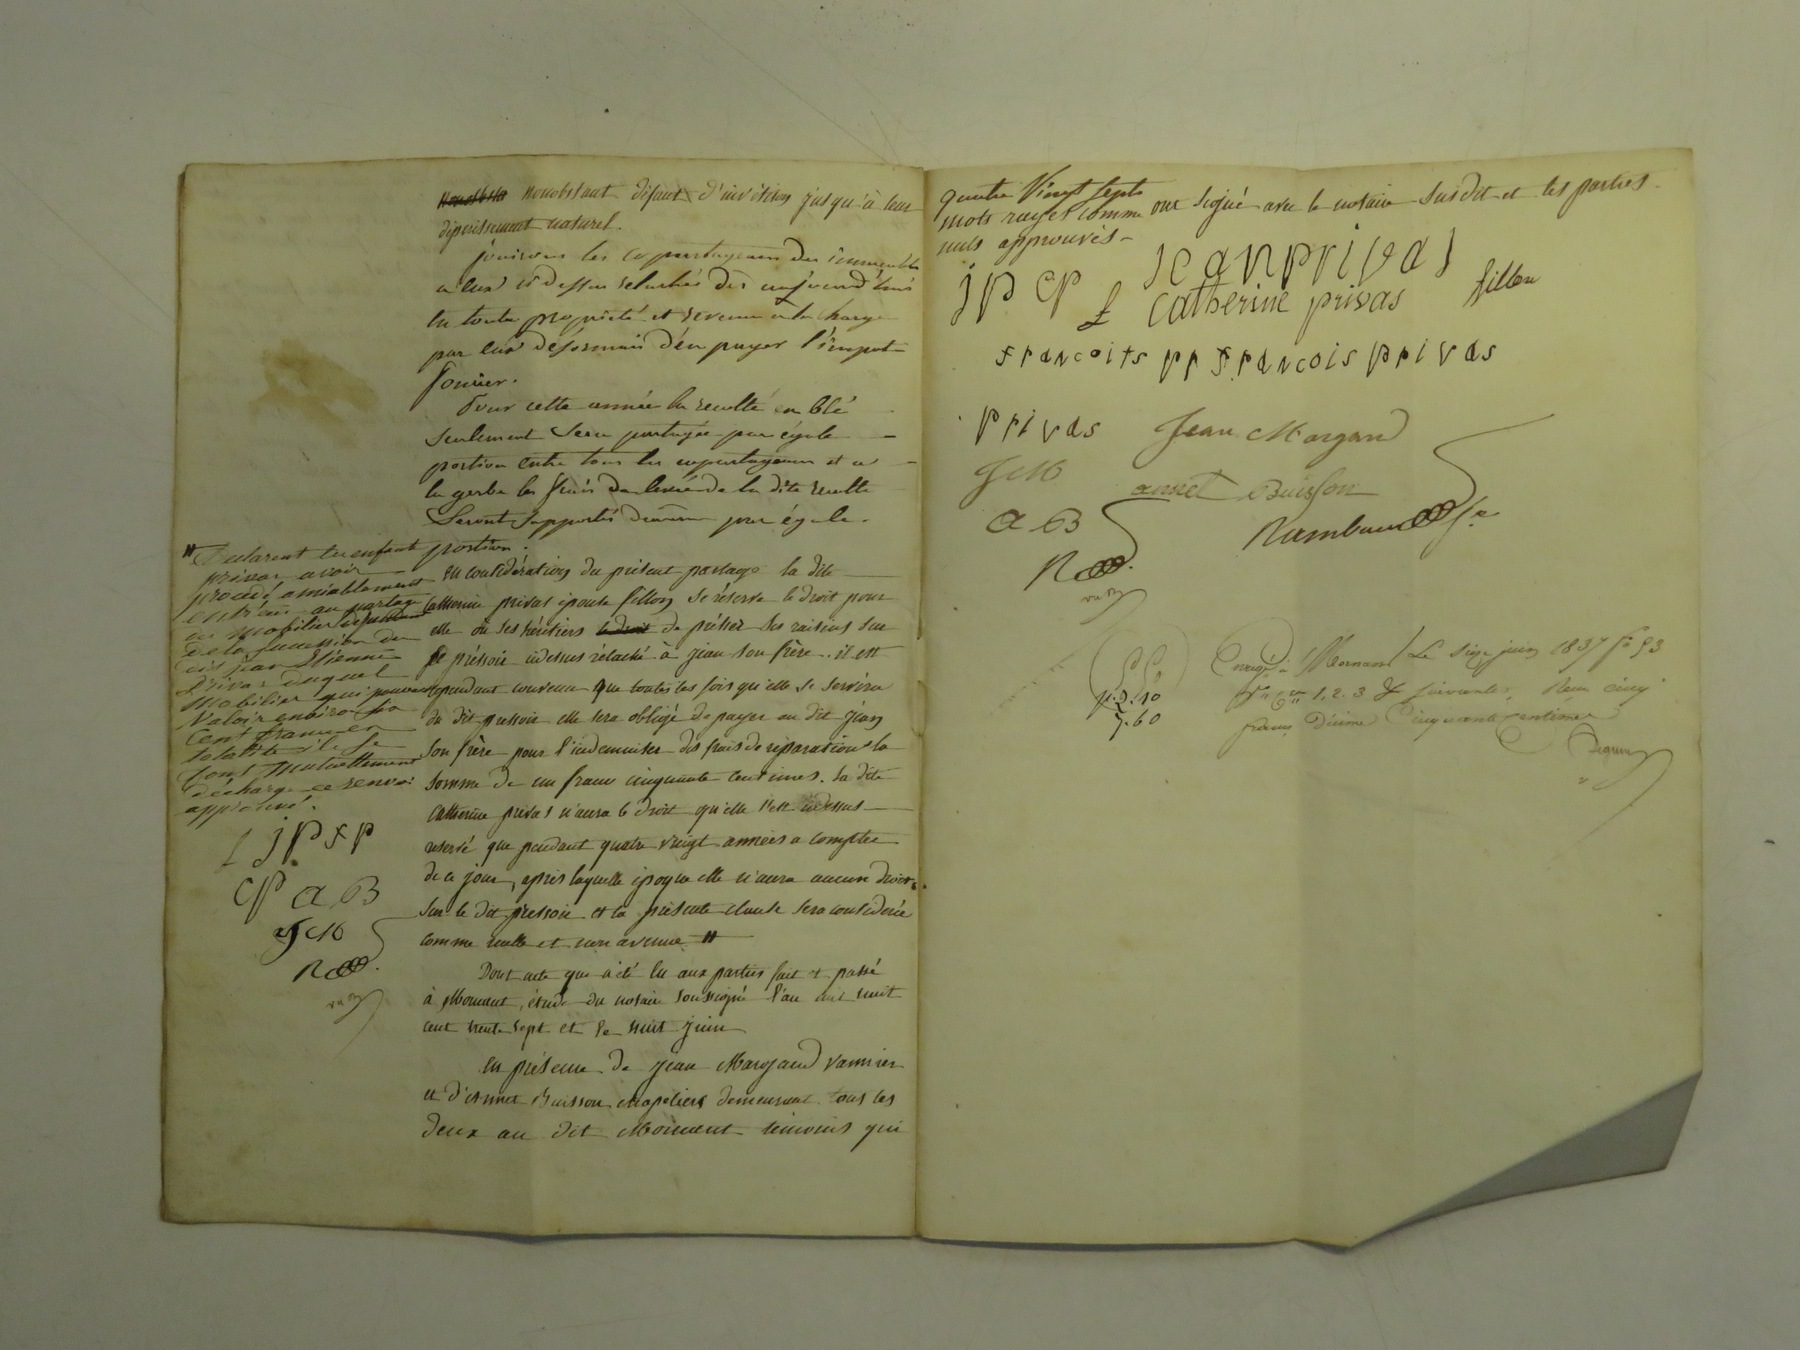 nonobstant défaut d'invêtison jusqu'à leur
dépérissement naturel.
Jouiront les copartageans des immeubles
a eux ci dessus relachés dès aujourd'hui
en toute propriété et revenu a la charge
par eux désormais d'en payer l'impot
foncier.
Pour cette année la recolte en blé
seulement sera partagée par égale
portion entre tous les copartageans et a
la gerbe les frais de levée de la dite recolte
seront supportés de même par égale
portion.
en considération du présent partage la dite
Catherine privas épouse fillon se réserve le droit pour
elle ou ses héritiers le droit de présser ses raisins sur
le préssoir cidessus rélaché à jean son frère. il est
cependant convenu que toutes les fois qu'elle se servira
du dit pressoir elle sera obligé de payer au dit jean
son frère pour l'indemniser des frais de réparations la
somme de un franc cinquante centimes. la dite
Catherine privas n'aura le droit qu'elle s'est cidessus
reservé que pendant quatre vingt années a compter
de ce jour, après laquelle époque elle n'aura aucun droit
sur le dit pressoir et la présente clause sera considerée
comme nulle et non avenue //
Dont acte que a été lu aux parties fait et passé
à Mornant, étude du notaire soussigné l'an mil huit
cent trente sept et le huit juin
en présence de jean Margand vannier
et d'annet Buisson chapelier demeurant tous les
deux au dit Mornant témoins qui
// Declarent les enfants
privas avoir
procédé amiablement
entr'eux au partage
du mobilier dépendant
de la succession du
dit jean Etienne
Privas duquel
mobilier qui pouvait
valoir environ
cent francs
totalité ils se
font mutuellement
décharge ce renvoi
approuvé.
f j P f P
CP a B
J M
R
quatre vingt sept
mots rayés comme
nuls approuvés
ont signé avec le notaire susdit et les parties.
jP CP f
jean privas
catherine privas fillon
francoits pr francois privas
privas Jean Margand
J M
annet Buisson
a B
R
Rambaud
n. 2. 10
7. 60
Enregé à Mornant Le seize juin 1837 fo 93
1. 2. 3 & suivantes, Reçu cinq
francs Décime Cinquante centimes